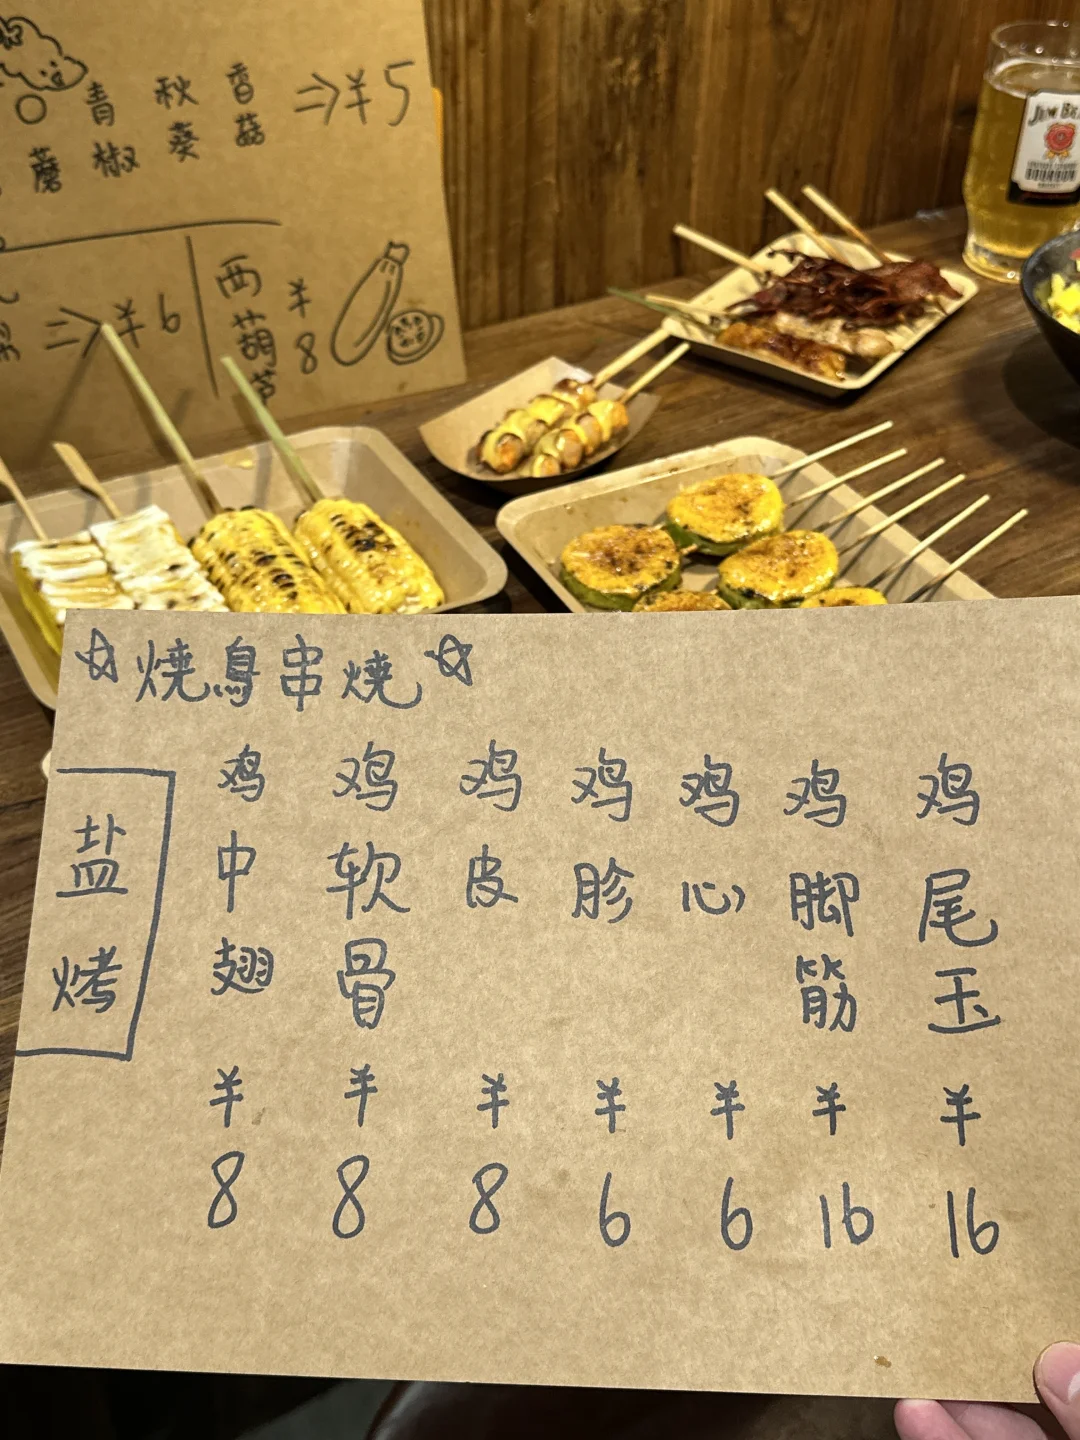 青椒
秋葵
香菇
⇒¥5
蘑
⇒¥6
西葫芦
¥8
JIM BEAM
☆燒鳥串燒☆
盐烤
鸡中翅 ¥8
鸡软骨 ¥8
鸡皮 ¥8
鸡胗 ¥6
鸡心 ¥6
鸡脚筋 ¥16
鸡尾玉 ¥16